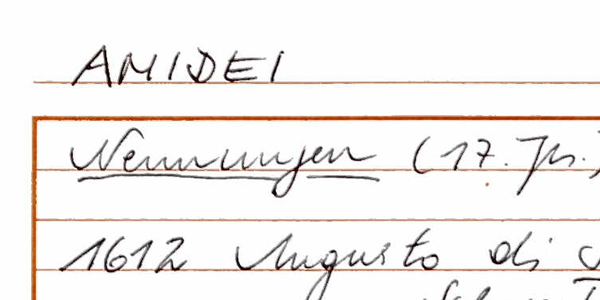 AMIDEI
Nennungen (17. Jh.)
1612 Augusto di